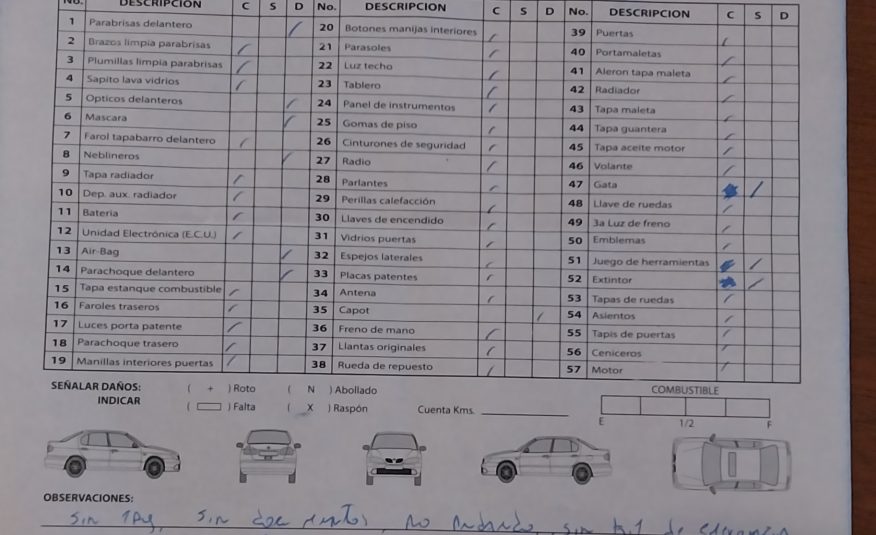 No. DESCRIPCION C S D No. DESCRIPCION C S D No. DESCRIPCION C S D
1 Parabrisas delantero 20 Botones manijas interiores 39 Puertas
2 Brazos limpia parabrisas 21 Parasoles 40 Portamaletas
3 Plumillas limpia parabrisas 22 Luz techo 41 Aleron tapa maleta
4 Sapito lava vidrios 23 Tablero 42 Radiador
5 Opticos delanteros 24 Panel de instrumentos 43 Tapa maleta
6 Mascara 25 Gomas de piso 44 Tapa guantera
7 Farol tapabarro delantero 26 Cinturones de seguridad 45 Tapa aceite motor
8 Neblineros 27 Radio 46 Volante
9 Tapa radiador 28 Parlantes 47 Gata
10 Dep. aux. radiador 29 Perillas calefacción 48 Llave de ruedas
11 Bateria 30 Llaves de encendido 49 3a Luz de freno
12 Unidad Electrónica (E.C.U.) 31 Vidrios puertas 50 Emblemas
13 Air-Bag 32 Espejos laterales 51 Juego de herramientas
14 Parachoque delantero 33 Placas patentes 52 Extintor
15 Tapa estanque combustible 34 Antena 53 Tapas de ruedas
16 Faroles traseros 35 Capot 54 Asientos
17 Luces porta patente 36 Freno de mano 55 Tapis de puertas
18 Parachoque trasero 37 Llantas originales 56 Ceniceros
19 Manillas interiores puertas 38 Rueda de repuesto 57 Motor
SEÑALAR DAÑOS: ( + ) Roto ( N ) Abollado COMBUSTIBLE
INDICAR ( ) Falta ( X ) Raspón Cuenta Kms. E 1/2 F
OBSERVACIONES:
sin sin no sin de